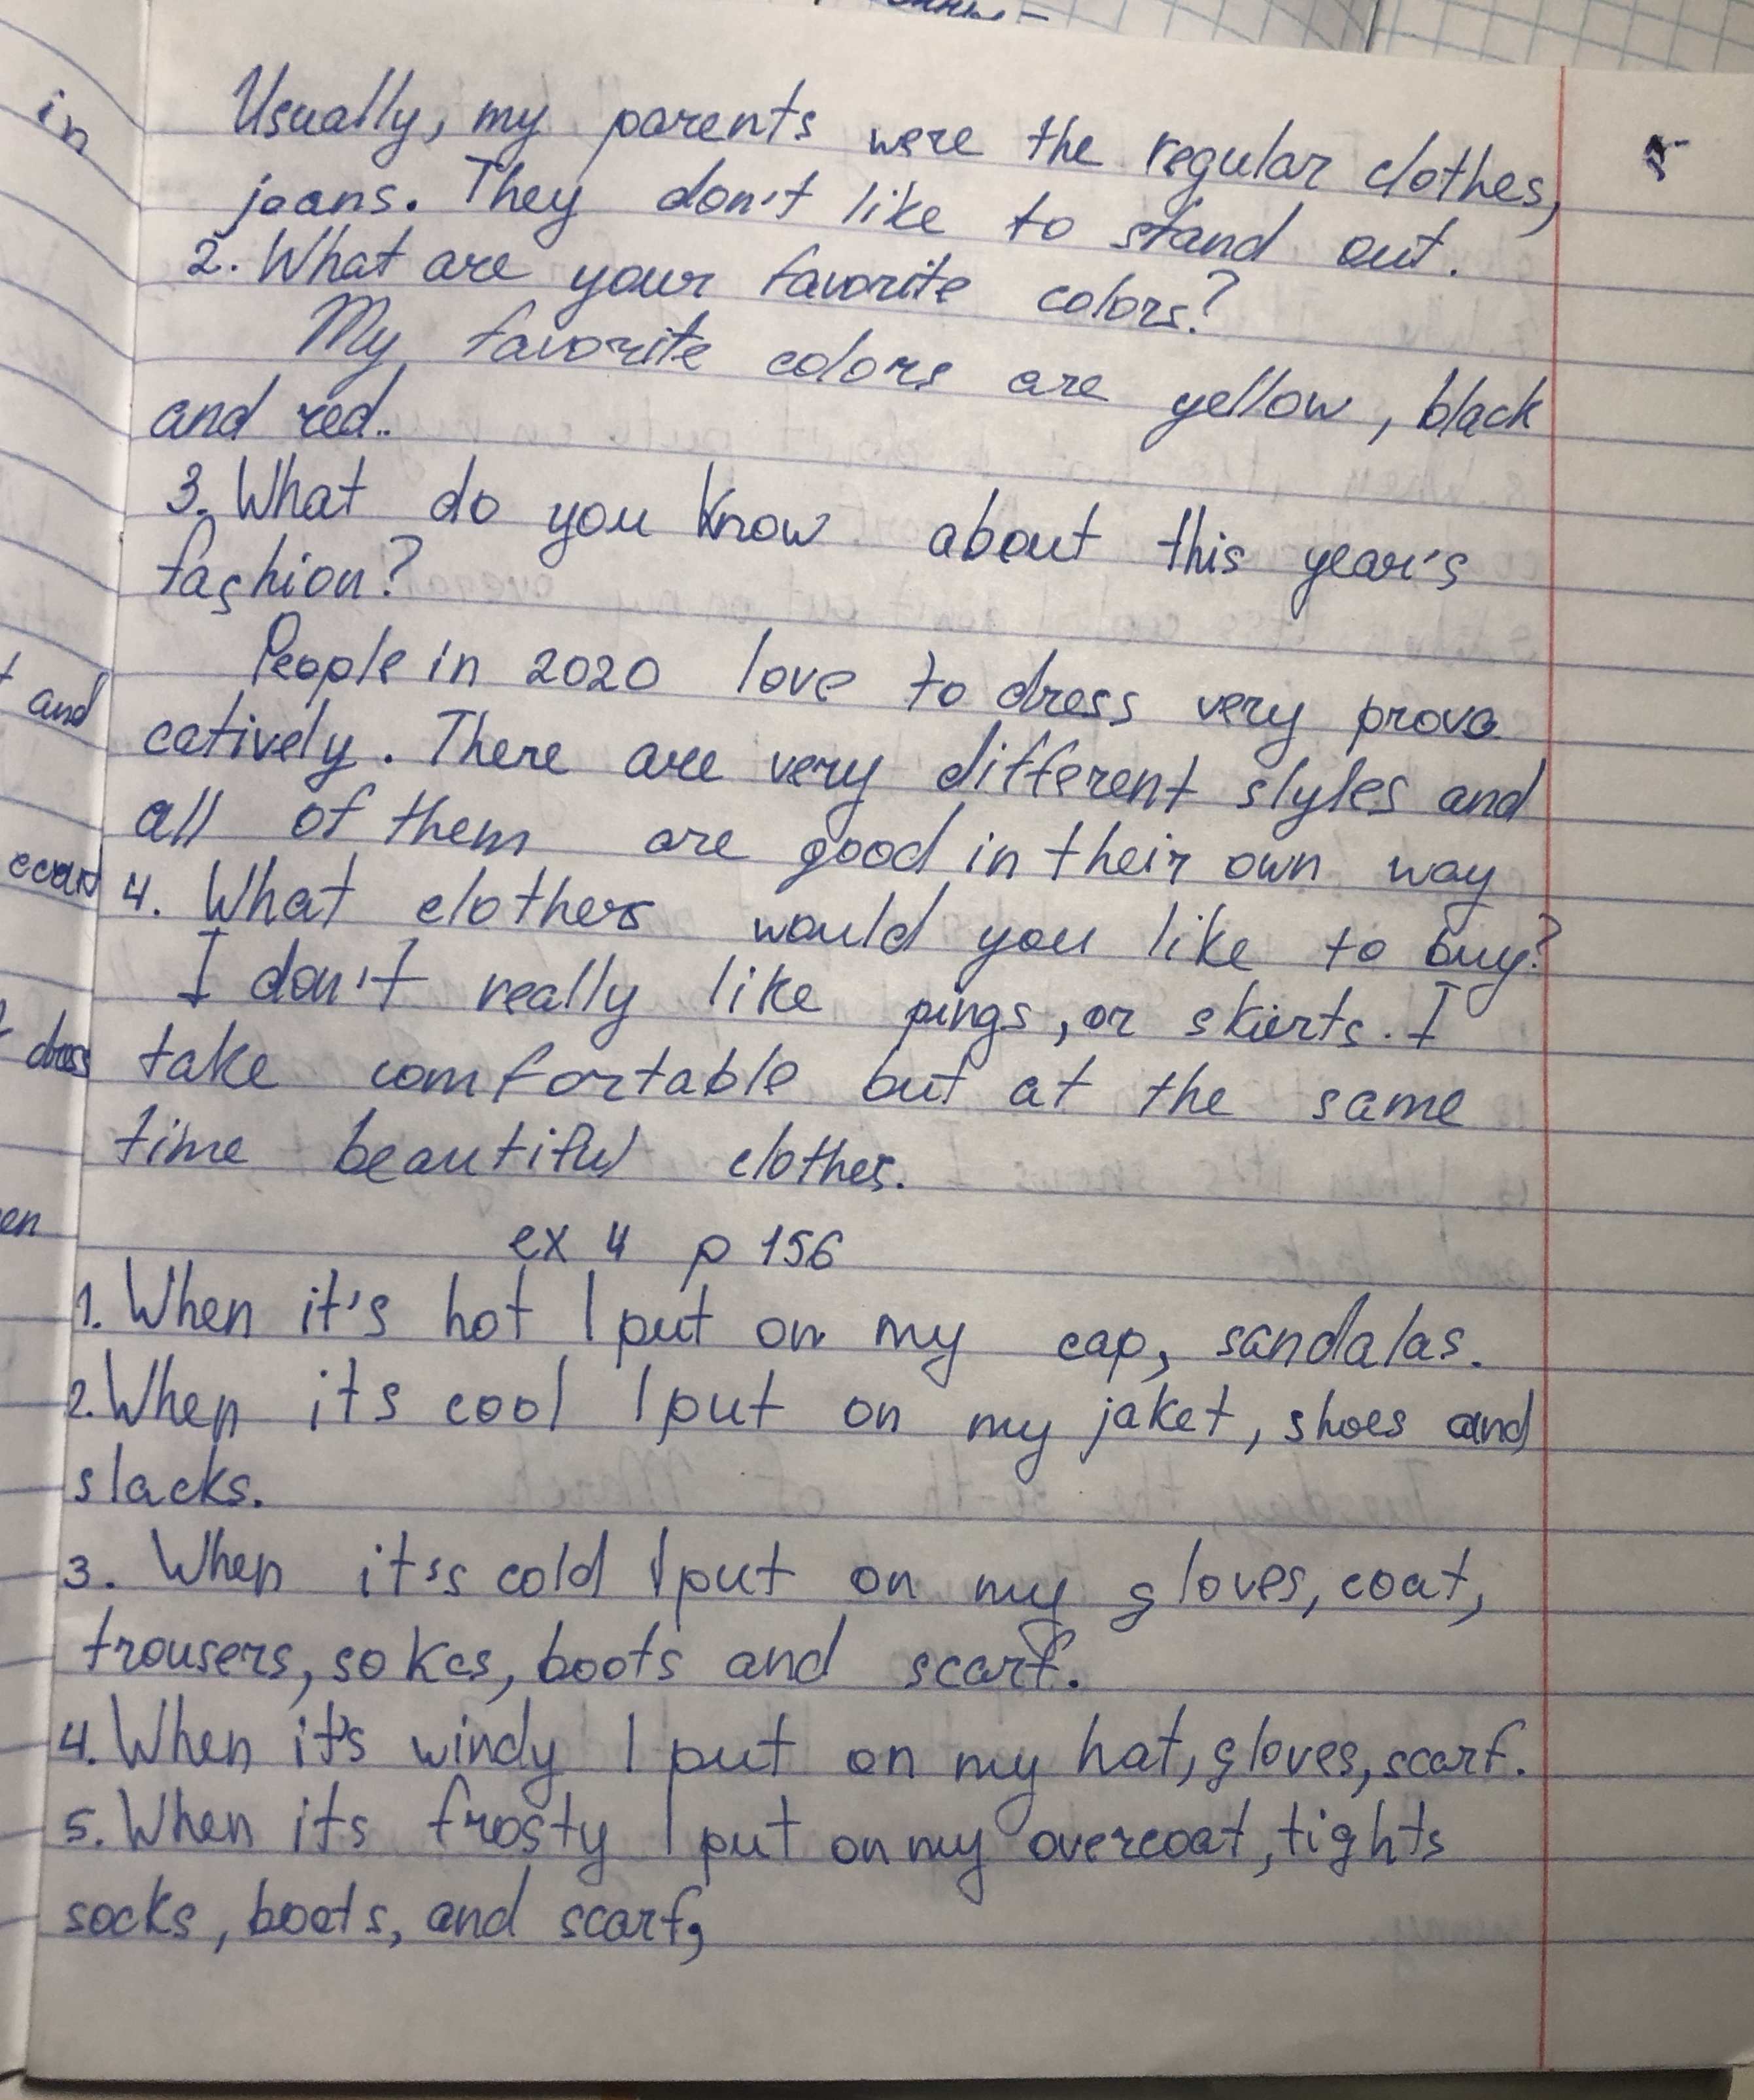 Usually, my parents were the regular clothes,
in
jeans. They don't like to stand out.
2. What are your favorite colors?
My favorite colors are yellow, black
and red..
3. What do you know about this year's
fashion?
People in 2020 love to dress very provo
and
catively. There are very different slyles and
all of them are good in their own way
4. What clothers would you like to buy?
I don't really like pings, or skirts. I
dress
take comfortable but at the same
time beautiful clothes.
en
ex 4 p 156
1. When it's hot I put on my cap, sandalas.
2. When it's cool I put on my jaket, shoes and
slacks.
3. When it's cold I put on my gloves, coat,
trousers, sokcs, boots and scarf.
4. When it's windy I put on my hat, gloves, scarf.
5. When its frosty I put on my overcoat, tights
socks, boots, and scarf,